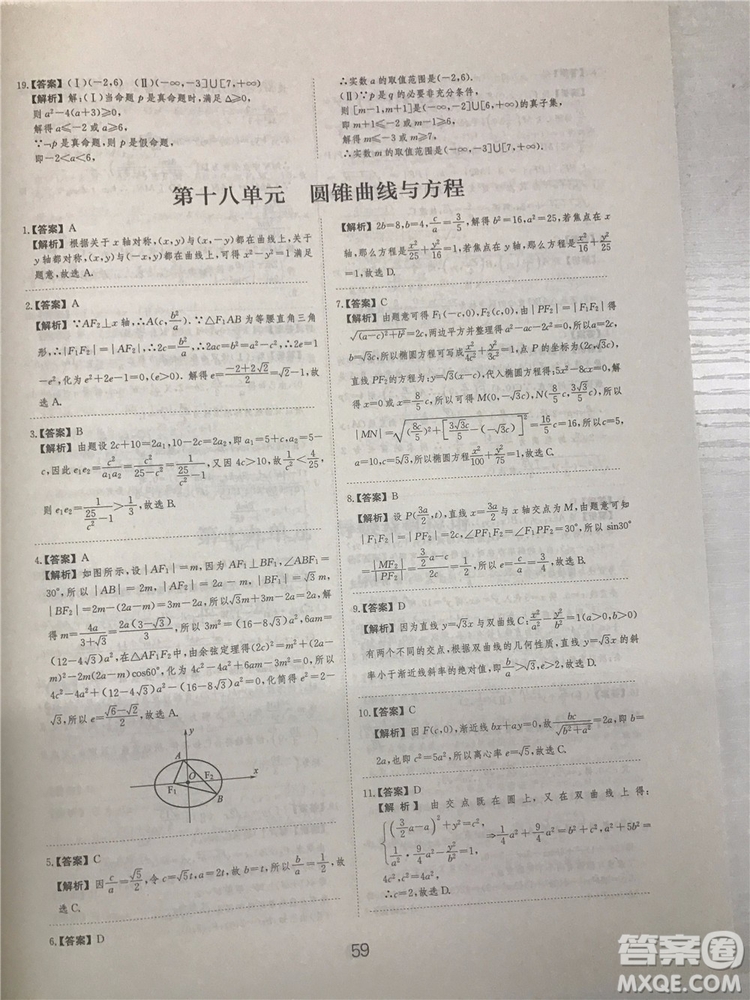 19.【答案】(Ⅰ)(-2,6) (Ⅱ)(-∞,-3]∪[7,+∞)
【解析】解:(Ⅰ)当命题 p 是真命题时,满足 Δ≥0,
则 a²-4(a+3)≥0,
解得 a≤-2 或 a≥6,
∵¬p 是真命题,则 p 是假命题,
即-2<a<6.
∴实数 a 的取值范围是(-2,6).
(Ⅱ)∵p 是 q 的必要非充分条件,
则[m-1,m+1]是(-∞,-2]∪[6,+∞)的真子集,
解得 m≤-3 或 m≥7,
∴实数 m 的取值范围是(-∞,-3]∪[7,+∞).
第十八单元 圆锥曲线与方程
1.【答案】A
【解析】根据关于 x 轴对称,(x,y)与(x,-y)都在曲线上,关于
y轴都对称,(x,y)与(-x,y)都在曲线上,可得 x²-y²=1 满足
题意,故选 A.
2.【答案】A
【解析】∵AF₂⊥x 轴,∴A(c,b²/a).∵△F₁AB 为等腰直角三角
形,∴|F₁F₂|=|AF₂|,∴2c=b²/a,∴2ac=b²=a²-c²,∴2e=1
-e²,化为 e²+2e-1=0,(e>0). 解得 e=(-2+2√2)/2=-1+√2.
故选 A.
3.【答案】B
【解析】由题设 2c+10=2a₁,10-2c=2a₂,即 a₁=5+c,a₂=5-
c,因为 e₁e₂=c²/(a₁a₂)=c²/(25-c²)=1/(25/c²-1),又因 4c>10,故 1/c²<4/25,
则 e₁e₂=1/(25/c²-1)>1/3,故选 B.
4.【答案】A
【解析】设|AF₁|=m,因为 AF₁⊥BF₁,∠ABF₁=
30°,所以|BF₁|=√3m,|AB|=2m,|AF₂|=2a-m,
|BF₂|=2m-(2a-m)=3m-2a,所以√3m+3m-2a=2a,解
得 m=4a/(3+√3)=2a(3-√3)/3,所以3m²=(16-8√3)a²,4m²-2am=
(12-4√3)a²,在△AF₁F₂ 中,由余弦定理得(2c)²=m²+(2a-
m)²-2m(2a-m)cos60°,化简为 4c²=4m²-2am+4a²-2am+
m²,即 4c²-4a²+(12-4√3)a²-(16-8√3)a²=0,化简得 e²=2-
√3,所以 e=(√6-√2)/2,故选 A.
y
A
O
F₁
F₂
B
x
5.【答案】C
【解析】因 c/a=√5/2,令 c=√5t,a=2t,故 b=t,所以 b/a=1/2,故
选 C.
6.【答案】D
【解析】2b=8,b=4,c/a=3/5,解得 b²=16,a²=25,若焦点在 x
轴,那么方程是 x²/25+y²/16=1,若焦点在 y 轴,那么方程是 x²/16+y²/25
=1,故选 D.
7.【答案】C
【解析】由题意可得 F₁(-c,0),F₂(c,0),由|PF₂|=|F₁F₂|得
√((a-c)²+b²)=2c,两边平方并整理得 2c²+ac-a²=0,所以 a=2c,
所以椭圆方程可写成 x²/4c²+y²/3c²=1,点 P 的坐标为(2c,√3c),所以
直线 PF₂的方程为y=√3(x-c),代入椭圆方程,整理得:5x²-8cx=0,解
得 x=0 或 x=8/5c,所以可得 M(0,-√3c),N(8/5c,3√3/5c),所以
|MN|=√((8c/5)²+[3√3c/5-(-√3c)]²)=16/5c=16,所以 c=5,
a=10,b=5√3,故椭圆方程为 x²/100+y²/75=1,故选 C.
8.【答案】B
【解析】设 P(3a/2,t),直线 x=3a/2 与 x 轴交点为 M,由题意可知
|F₁F₂|=|PF₂|=2c,∠PF₁F₂=∠F₁PF₂=30°,所以 sin30°
=|MF₂|/|PF₂|=(3/2a-c)/2c=1/2,所以 e=c/a=3/4,故选 B.
9.【答案】D
【解析】因为直线 y=√3x 与双曲线 C:x²/a²-y²/b²=1(a>0,b>0)
有两个不同的交点,根据双曲线的几何性质,直线 y=√3x 的斜
率应大于渐近线斜率的绝对值,即 b/a>√3,e>2,故选 D.
10.【答案】C
【解析】因 F(c,0),渐近线 bx+ay=0,故 bc/√(b²+a²)=2a,即 b=
2a,也即 c²=5a²,所以离心率 e=√5,故选 C.
11.【答案】D
【解析】由交点既在圆上,又在双曲线上得:
{(3/2a-a)²+y²=c², ⇒1/4a²+9/4a²=b²+c²,又 a²+b²=
4c²,c²=4a²,
∴c=2,故选 D.
59
答案圈
MXQE.COM